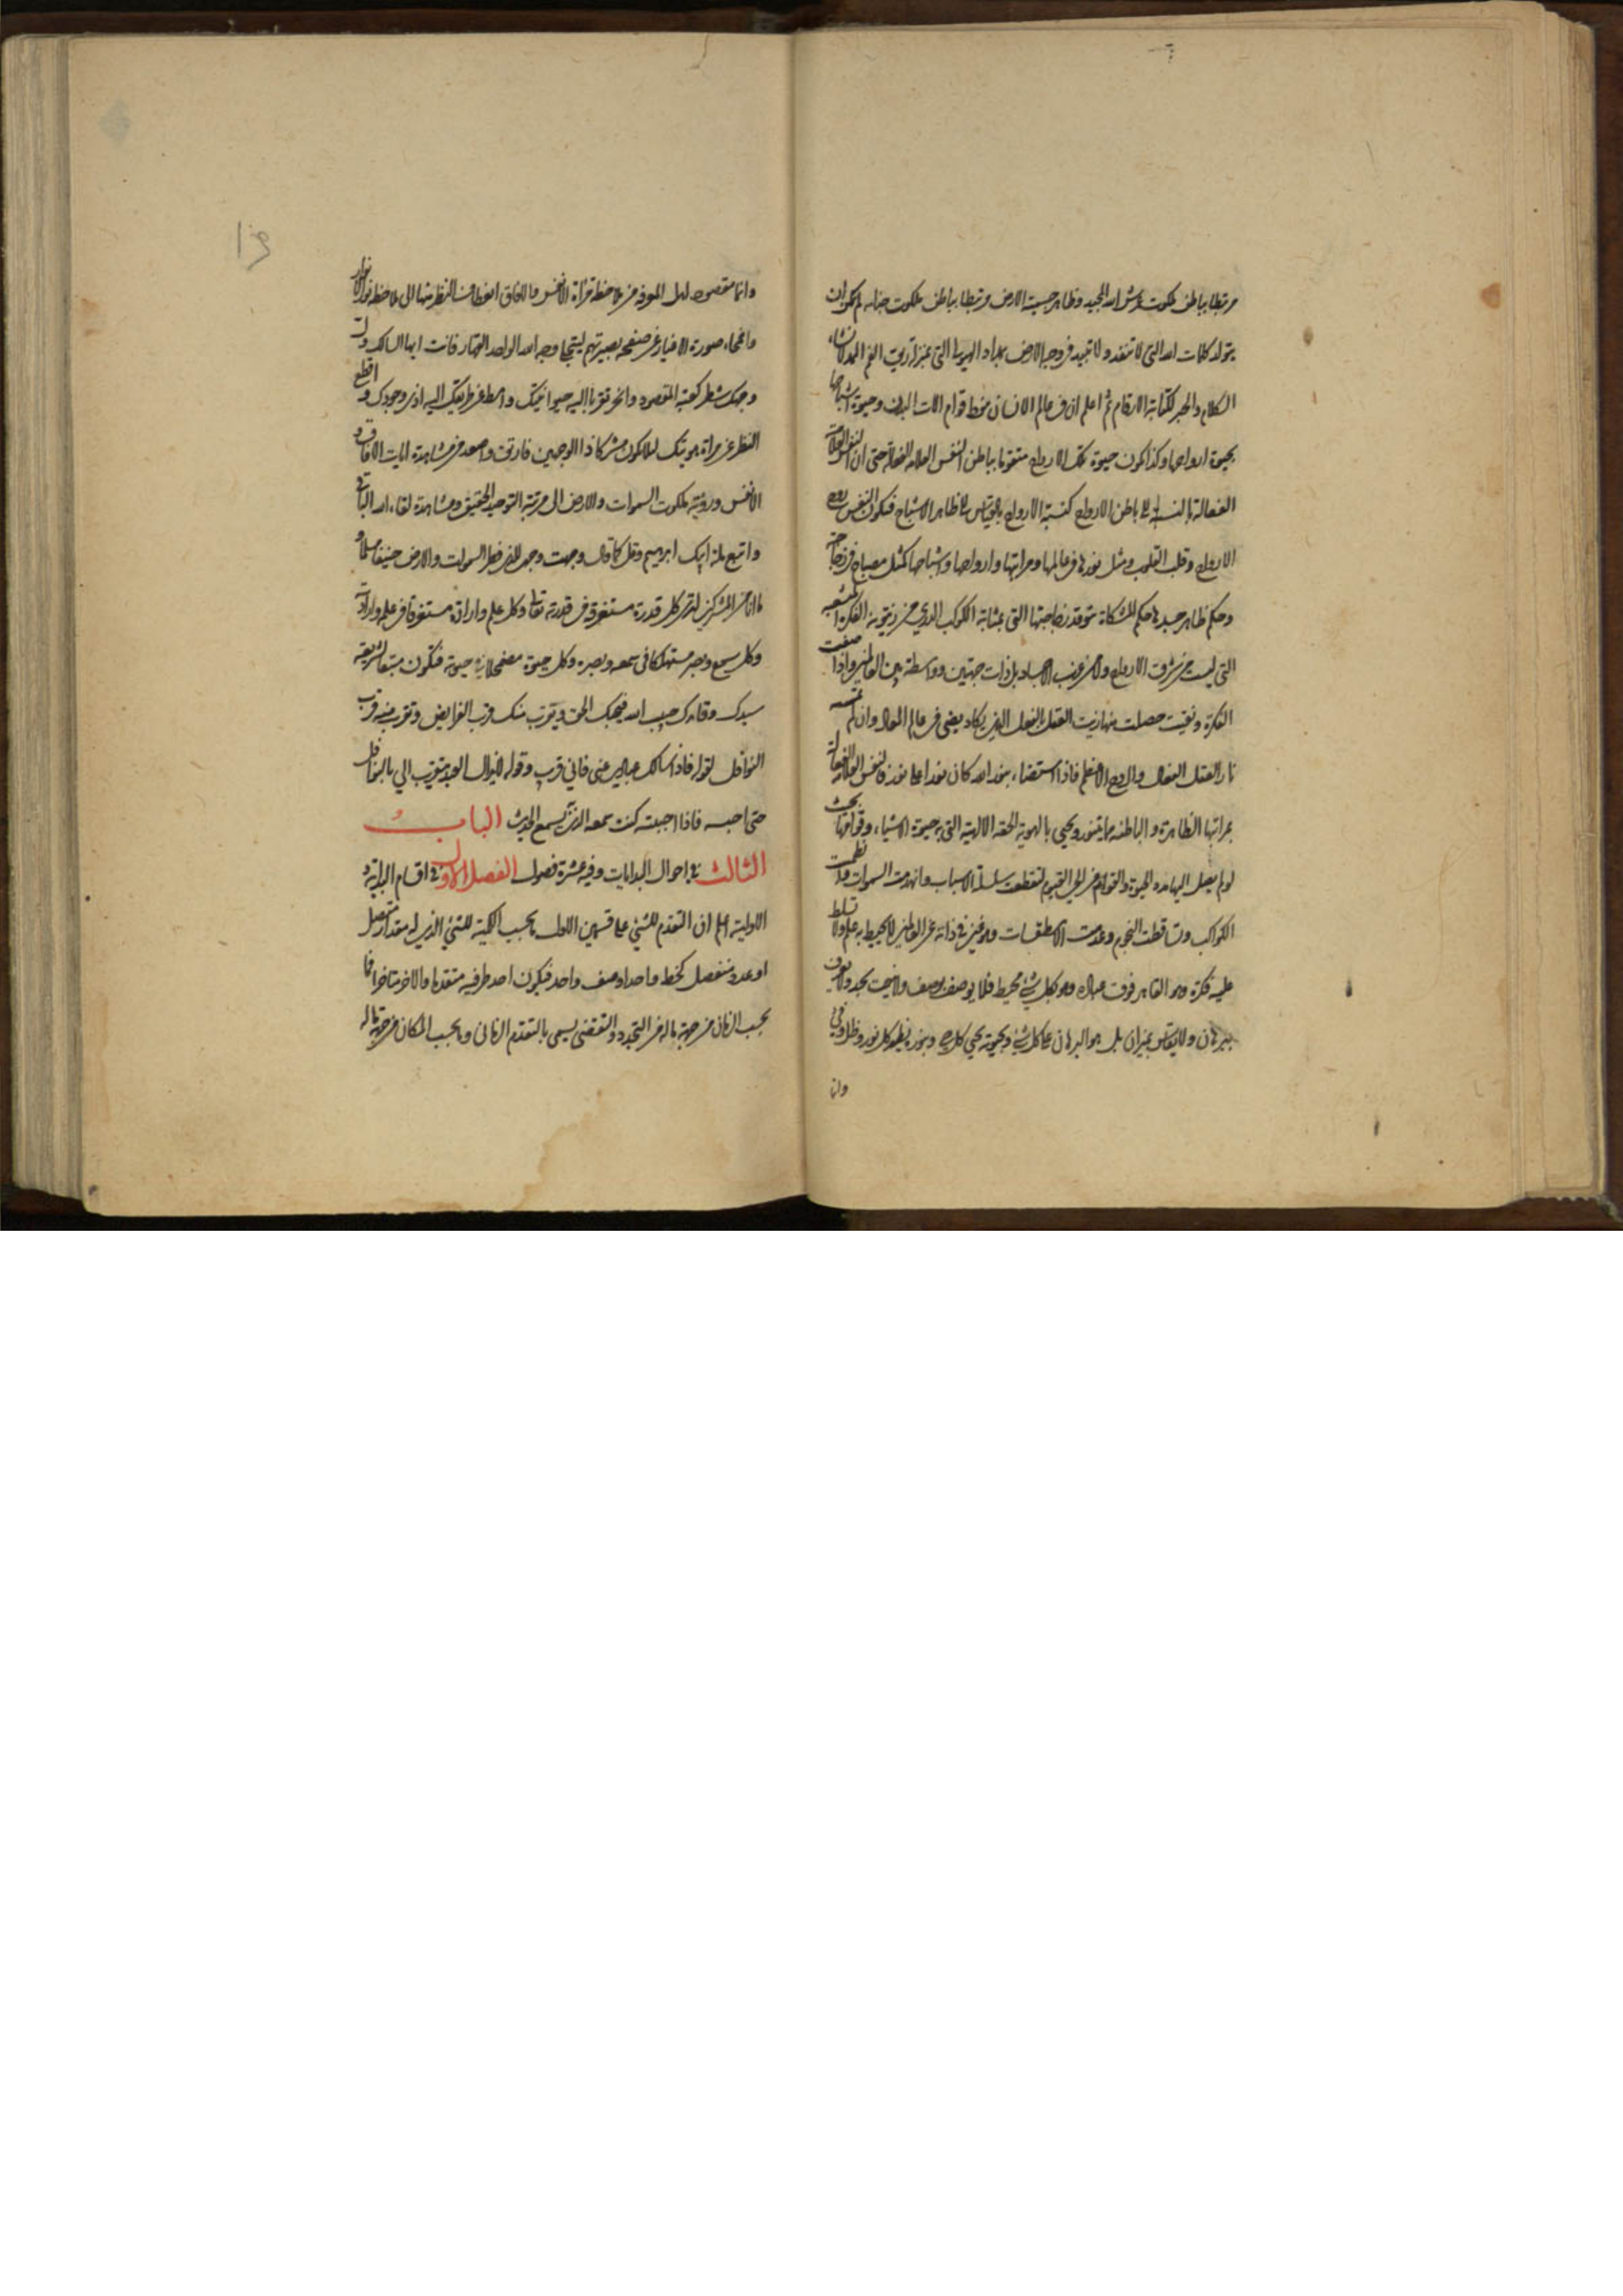 مرتبطا بباطن ملكوت عرش الله المجيد وظاهر جسمية الارض مرتبطا بباطن ملكوت
يتولد كلمات الله التى لا تنفد ولا تبيد فى وجه الارض بمداد الهيولى التى
الكلام والحبر لكتابة الارقام ثم اعلم ان فى عالم الانسان قوام الات البدن وحيوة اشباحها
بحيوة ارواحها وكذا يكون حيوة تلك الارواح متقوما بباطن النفس العلامة الفعالة حتى ان النفس العلامة
الفعالة بالنسبة الى باطن الارواح كنسبة الارواح بالقياس الى ظاهر الاشباح فيكون النفس روح
الارواح وقلب القلوب ومثل نورها فى عالمها ومراتبها وارواحها واشباحها كمثل مصباح فى زجاجة
وحكم ظاهر جسدها حكم المشكاة متوقد زجاجتها التى بمثابة الكوكب الدرى من زيتونة الفكرة
التى ليست من شرق الارواح ولا من غرب الاجساد بل ذات جهتين وواسطة بين العالمين واذا صفت
الفكرة ونقيت حصلت منها زيت العقل بالفعل الذى يكاد يضئ فى عالم المعاد وان لم تمسسه
نار العقل الفعال والروح الاعظم فاذا استضاء بنور الله كان نورا على نور فالنفس العلامة الفعالة
بمراتبها الظاهرة والباطنة مما يتنور ويحيى بالهوية الحقة الالهية التى به حيوة الاشياء وقوامها بحيث
لو لم يصل اليها مدد الحيوة والقوام من الحى القيوم لتقطعت سلسلة الاسباب وانهدمت السموات
الكواكب وتساقطت النجوم وعدمت الاسطقسات وهو غنى فى ذاته عن العالمين لا يحيط به علم ولا تسلط
عليه فكرة وهو القاهر فوق عباده وهو بكل شئ محيط فلا يوصف بوصف ولا ينعت بحد ولا يعرف
ببرهان ولا يقاس بميزان بل هو البرهان على كل شئ وبحيوته يحيى كل حى وبنوره يظهر كل نور وظل وفئ
وانما
وانما مقصود اهل المعرفة من ملاحظة مرآة الانفس والافاق انعطاف النظر منها الى ملاحظة نور الانوار
وامحاء صورة الاغيار عن صفحة بصيرتهم ليتجلى وجه الله الواحد القهار فانت ايها السالك ول
وجهك شطر كعبة المقصود وانحر تقربا اليه حيوانيتك وامط عن طريقك اليه اذى وجودك واقطع
النظر عن مرآة هويتك لئلا تكون مشركا ذا الوجهين فارتق واصعد من مشاهدة ايات الافاق و
الانفس ورؤية ملكوت السموات والارض الى مرتبة التوحيد الحقيقى ومشاهدة لقاء الله الباقى
واتبع ملة ابيك ابرهيم وقل كما قال وجهت وجهى للذى فطر السموات والارض حنيفا مسلما و
ما انا من المشركين لترى كل قدرة مستغرقة فى قدرته تعالى وكل علم وارادة مستغرقا فى علمه وارادته
وكل سمع وبصر مستهلكا فى سمعه وبصره وكل حيوة مضمحلا فى حيوته فتكون متبعا لشريعة
سيدك وقائدك حبيب الله فيحبك الحق ويقرب منك قرب الفرايض وتقرب منه قرب
النوافل لقوله فاذا سالك عبادى عنى فانى قريب وقوله لا يزال العبد يتقرب الى بالنوافل
حتى احبه فاذا احببته كنت سمعه الذى به يسمع الحديث الباب
الثالث فى احوال البدايات وفيه عشرة فصول الفصل الاول فى اقسام البداية و
الاولية اعلم ان التقدم للشئ على قسمين الاول بحسب الكمية للشئ الذى له مقدار متصل
او عدد منفصل كخط واحد او صف واحد فيكون احد طرفيه متقدما والاخر متاخرا فما
بحسب الزمان من جهة ما له من التجدد والتقضى يسمى بالتقدم الزمانى وبحسب المكان من جهة ما له